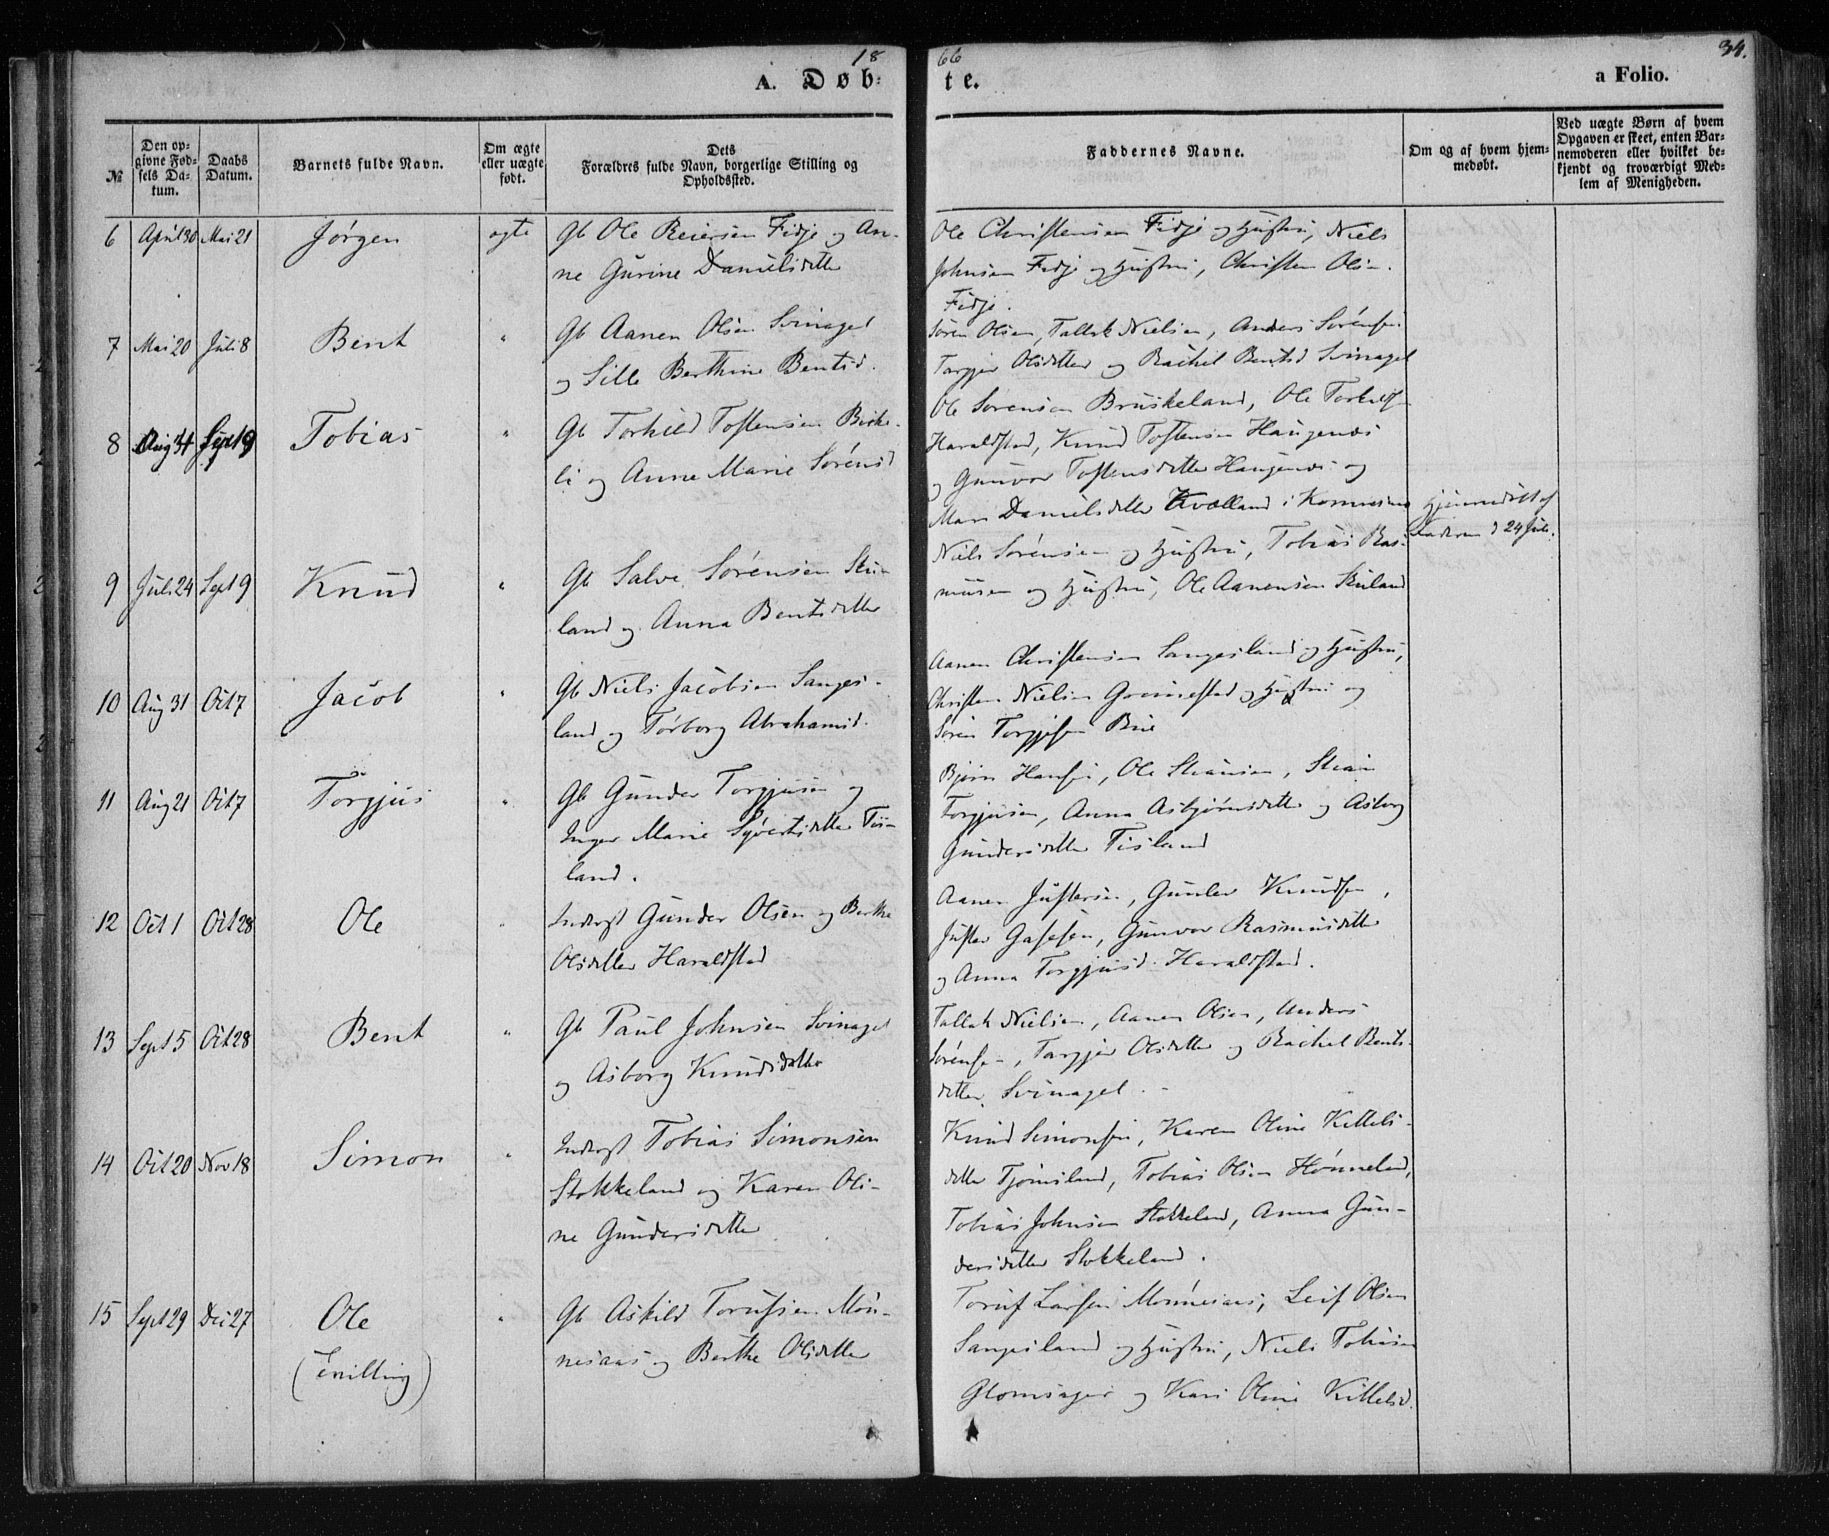 1866
34.
A. Døbte.
a Folio.
№
Den op-
givne Fød-
sels Da-
tum.
Daabs
Datum.
Barnets fulde Navn.
Om ægte
eller uægte
født.
Dets
Forældres fulde Navn, borgerlige Stilling og
Opholdssted.
Faddernes Navne.
Om og af hvem hjem-
medøbt.
Ved uægte Børn af hvem
Opgaven er skeet, enten Bar-
nemoderen eller hvilket be-
kjendt og troværdigt Med-
lem af Menigheden.
6 April 30 Mai 21 Jörgen ægte Gb Ole Reiersen Fidje og An-
ne Gurine Danielsdatter
Ole Christensen Fidje og Hustru, Niels
Johnsen Fidje og Hustru, Christen Olsen
Fidje.
7 Mai 20 Juli 8 Bent " Gb Aanen Olsen Svinagel
og Sille Berthine Bentsd.
Sören Olsen, Tallak Nielsen, Anders Sörensen
Torgjer Olsdatter og Rachel Bentsd Svinagel
8 Aug 31 Sept 9 Tobias " Gb Torkild Toftensen Birke-
li og Anne Marie Sörensd
Ole Sorensen Bruskeland, Ole Torkildsen
Haraldstad, Knud Toftensen Haugenes
og Gunvor Toftensdatter Haugenes og
Mari Danielsdatter Kvælland i
9 Juli 24 Sept 9 Knud " Gb Salve Sörensen Sku-
land og Anna Bentsdatter
Niels Sörensen og Hustru, Tobias Ras-
musen og Hustru, Ole Aanensen Skuland
Hjemmedöbt af
Faderen d 24 Juli.
10 Aug 31 Oct 7 Jacob " Gb Niels Jacobsen Sanges-
land og Torborg Abrahamsd.
Aanen Christensen Sangesland og Hustru,
Christen Nielsen Greimestad og Hustru og
Sören Torgjusen Bue
11 Aug 21 Oct 7 Torgjus " Gb Gunder Torgjusen og
Inger Marie Syvertsdatter Tis-
land.
Björn Hansen, Ole Steansen, Stean
Torgjusen, Anna Asbjörnsdatter og Asborg
Gundersdatter Tisland
12 Oct 1 Oct 28 Ole " Inderst Gunder Olsen og Berthe
Olsdatter Haraldstad
Aanen Justersen, Gunler Knudsen,
Juster Gasesen, Gunvor Rasmusdatter
og Anna Torgjusd. Haraldstad.
13 Sept 5 Oct 28 Bent " Gb Paul Johnsen Svinagel
og Asborg Knudsdatter
Tallak Nielsen, Aanen Olsen, Anders
Sörensen, Torgjer Olsdatter og Rachel Bents-
datter Svinagel.
14 Oct 20 Nov 18 Simon " Inderst Tobias Simonsen
Stokkeland og Karen Oli-
ne Gundersdatter
Knud Simonsen, Karen Oline Kittels-
datter Tjomsland, Tobias Olsen Hönneland,
Tobias Johnsen Stokkeland, Anna Gun-
dersdatter Stokkeland.
15 Sept 29 Dec 27 Ole " Gb Askild Torufsen Mön-
nesaas og Berthe Olsdatter
(tvilling)
Toruf Larsen Mönnesaas, Leif Olsen
Sangesland og Hustru, Niels Tobiasen
Glomsager og Kari Oline Kittelsd.